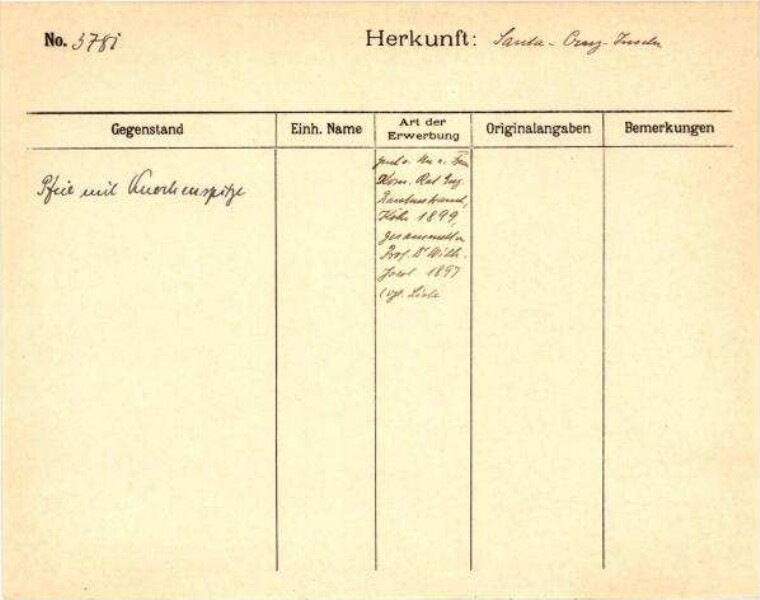 No. 378i
Herkunft: Santa-Cruz-Inseln
Gegenstand
Einh. Name
Art der
Erwerbung
Originalangaben
Bemerkungen
Pfeil mit Knochenspitze
Kom. Rat Eug.
Rautenstrauch,
Köln 1899,
gesammelt v.
Prof. Dr Wilh.
Joest 1897
(vgl. Liste